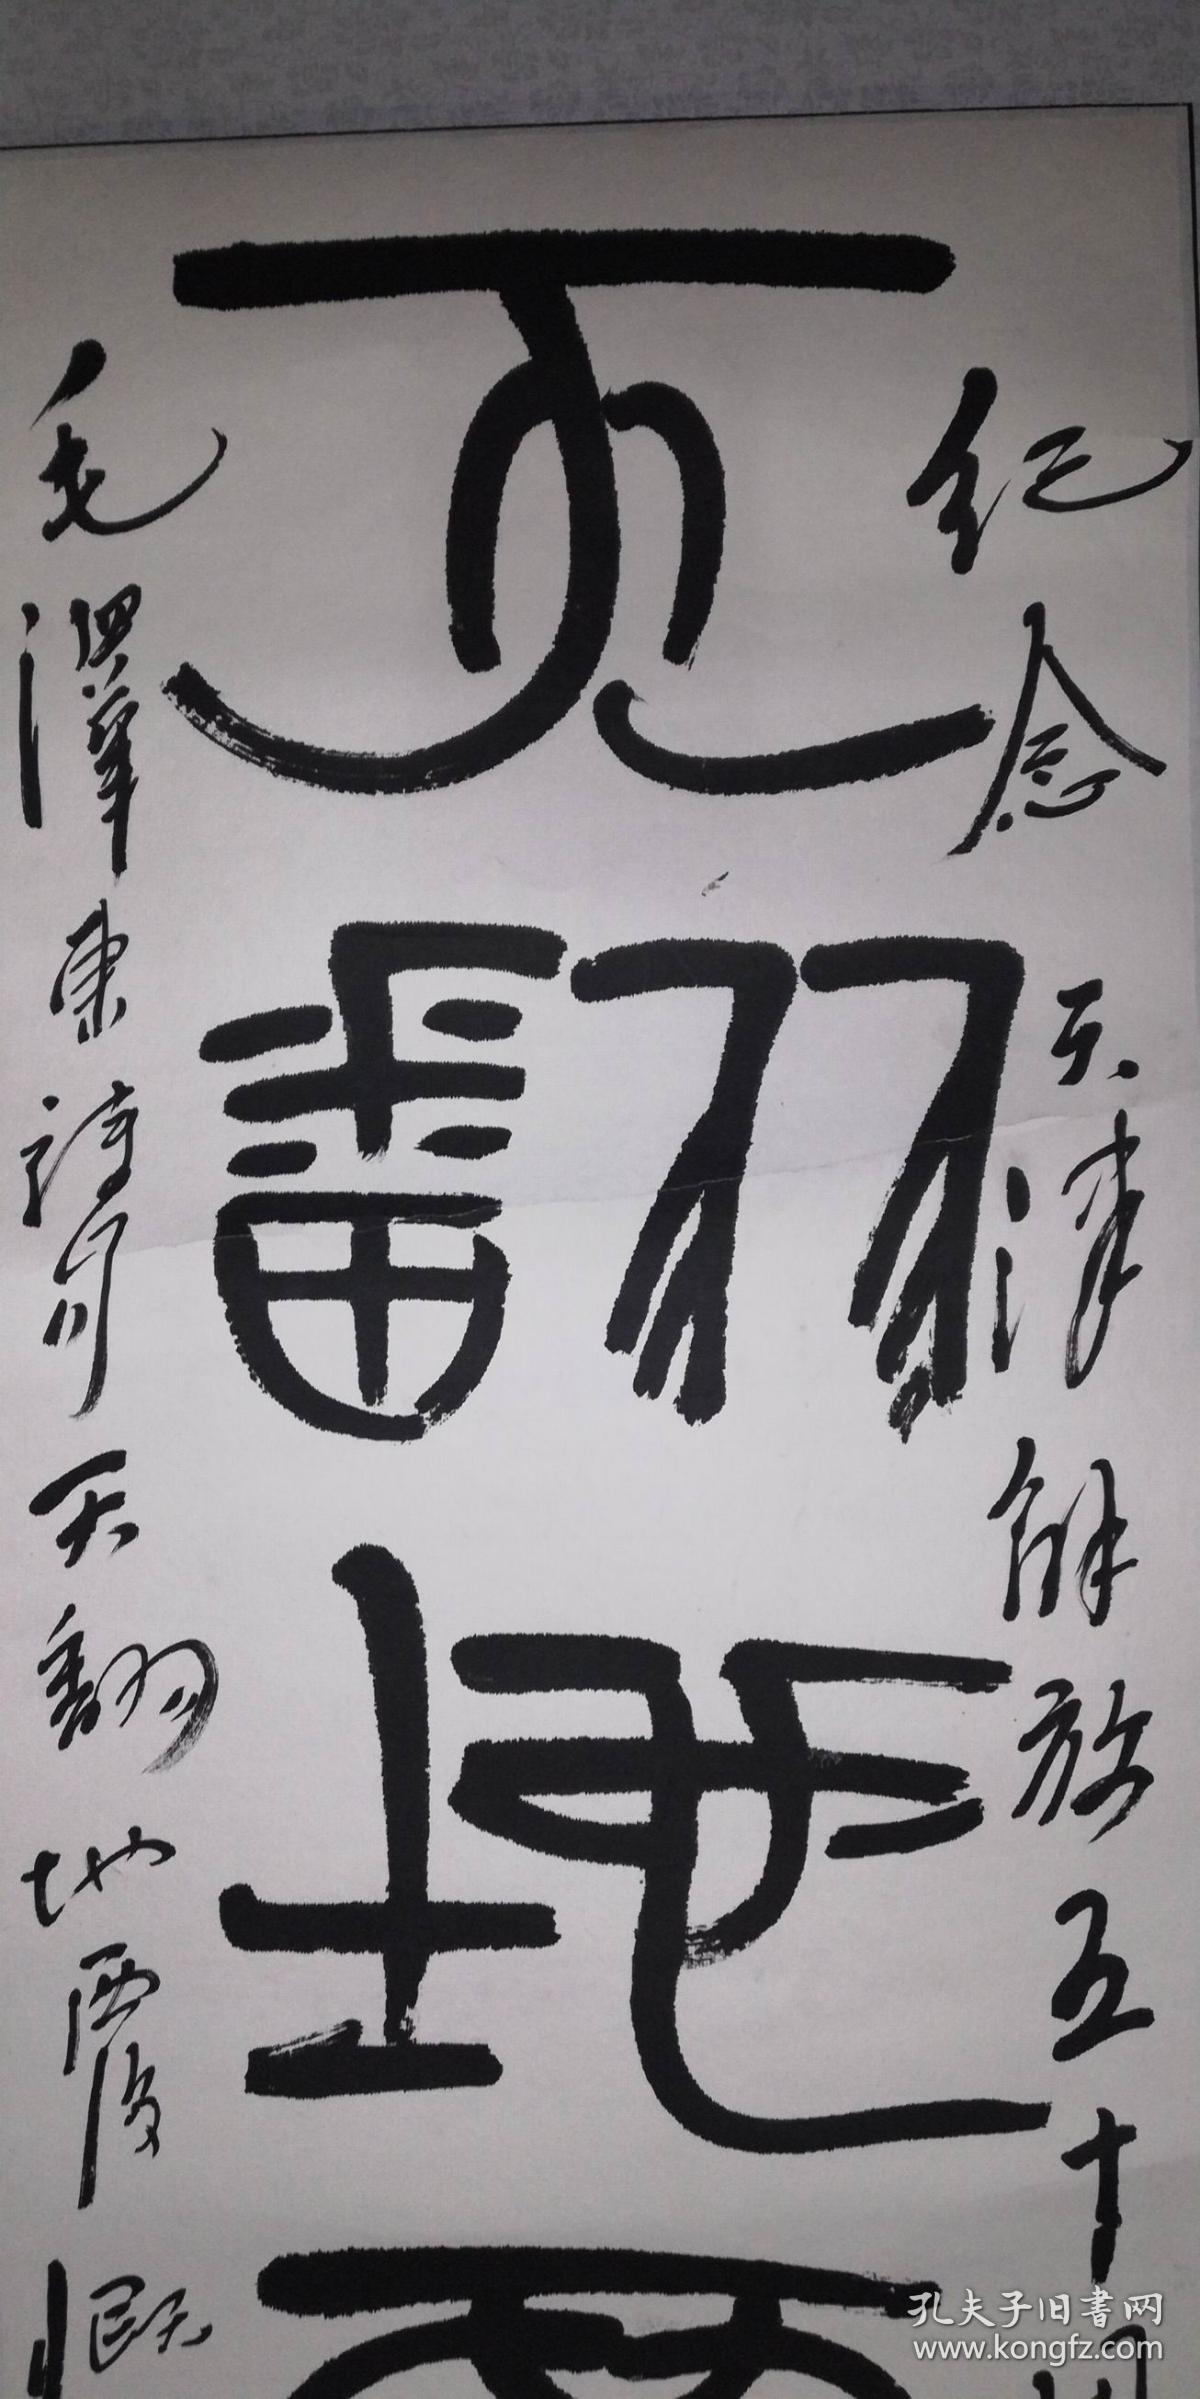 纪念天津解放五十周
天翻地覆
毛泽东诗句天翻地覆慨
孔夫子旧书网
www.kongfz.com